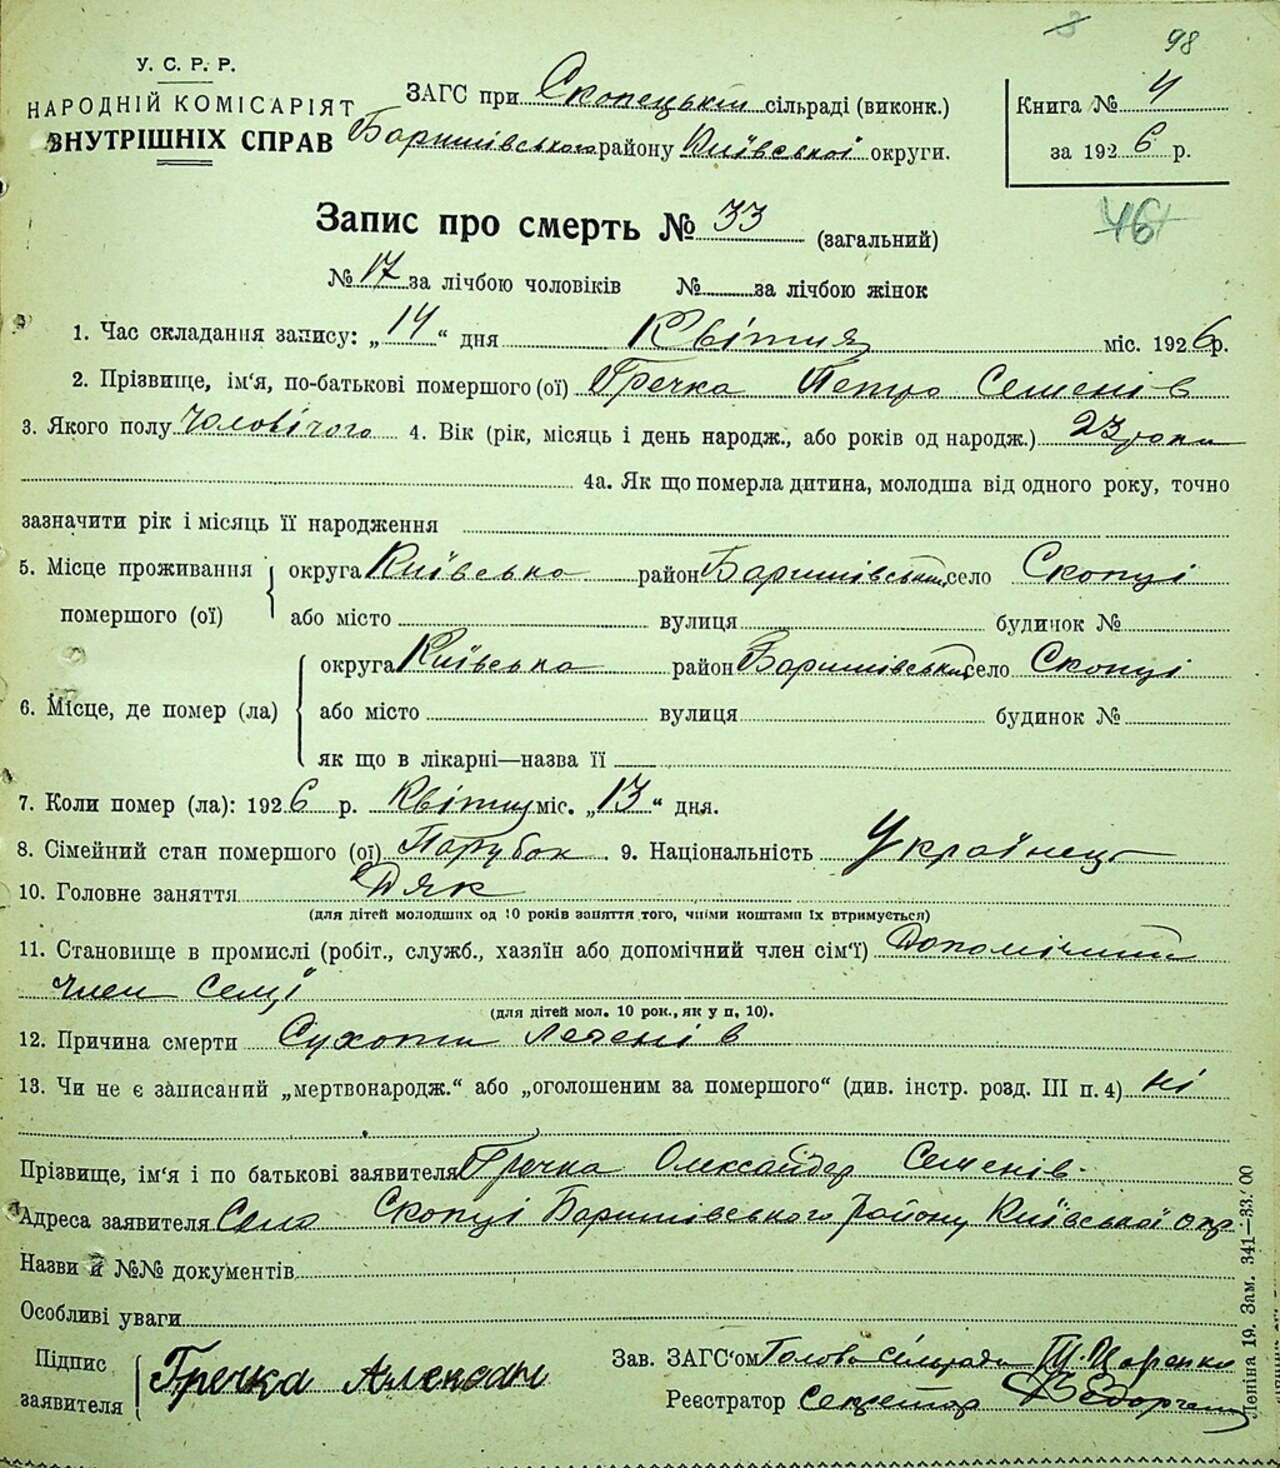 8 98
У. С. Р. Р.
НАРОДНІЙ КОМІСАРІЯТ
ВНУТРІШНІХ СПРАВ
ЗАГС при Скопецькій сільраді (виконк.)
Баришівського району Київської округи.
Книга № 4
за 1926 р.
46
Запис про смерть № 33 (загальний)
№ 17 за лічбою чоловіків № за лічбою жінок
1. Час складання запису: „14“ дня Квітня міс. 1926р.
2. Прізвище, ім'я, по-батькові помершого (ої) Гречка Петро Семенів
3. Якого полу Чоловічого 4. Вік (рік, місяць і день народж., або років од народж.) 23 роки
4а. Як що померла дитина, молодша від одного року, точно
зазначити рік і місяць її народження
5. Місце проживання помершого (ої)
округа Київська район Баришівський село Скопці
або місто вулиця будинок №
6. Місце, де помер (ла)
округа Київська район Баришівський село Скопці
або місто вулиця будинок №
як що в лікарні—назва її
7. Коли помер (ла): 1926 р. Квітня міс. „13“ дня.
8. Сімейний стан помершого (ої) Парубок . 9. Національність Українець
10. Головне заняття Дяк
(для дітей молодших од 10 років заняття того, чиїми коштами їх втримується)
11. Становище в промислі (робіт., служб., хазяїн або допомічний член сім'ї) Допомічний
член семʼї
(для дітей мол. 10 рок., як у п, 10).
12. Причина смерти Сухоти легенів
13. Чи не є записаний „мертвонародж.“ або „оголошеним за помершого“ (див. інстр. розд. III п. 4) ні
Прізвище, ім'я і по батькові заявителя Гречка Олександер Семенів
Адреса заявителя Село Скопці Баришівського Району Київської окр
Назви й №№ документів
Особливі уваги
Підпис заявителя Гречка
Зав. ЗАГС'ом Голова сільради
Реєстратор Секретар
Леніна 19. Зам. 341—33.000